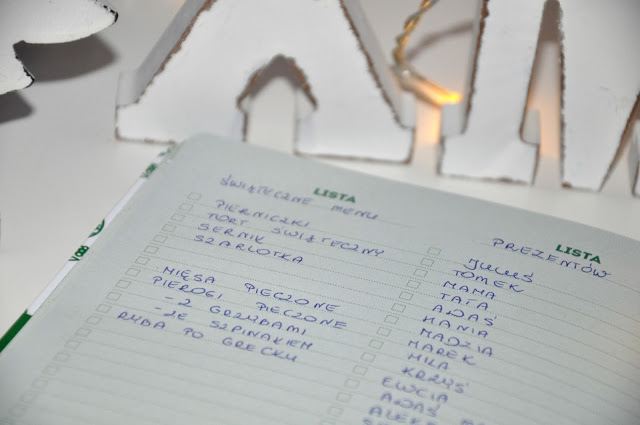 LISTA
ŚWIĄTECZNE MENU
PIERNICZKI
TORT ŚWIĄTECZNY
SERNIK
SZARLOTKA
MIĘSA PIECZONE
PIEROGI PIECZONE
- Z GRZYBAMI
- ZE SZPINAKIEM
RYBA PO GRECKU
LISTA
PREZENTÓW
JULUŚ
TOMEK
MAMA
TATA
ADAŚ
HANIA
MADZIA
MAREK
MILA
KRZYŚ
EWCIA
ADAŚ